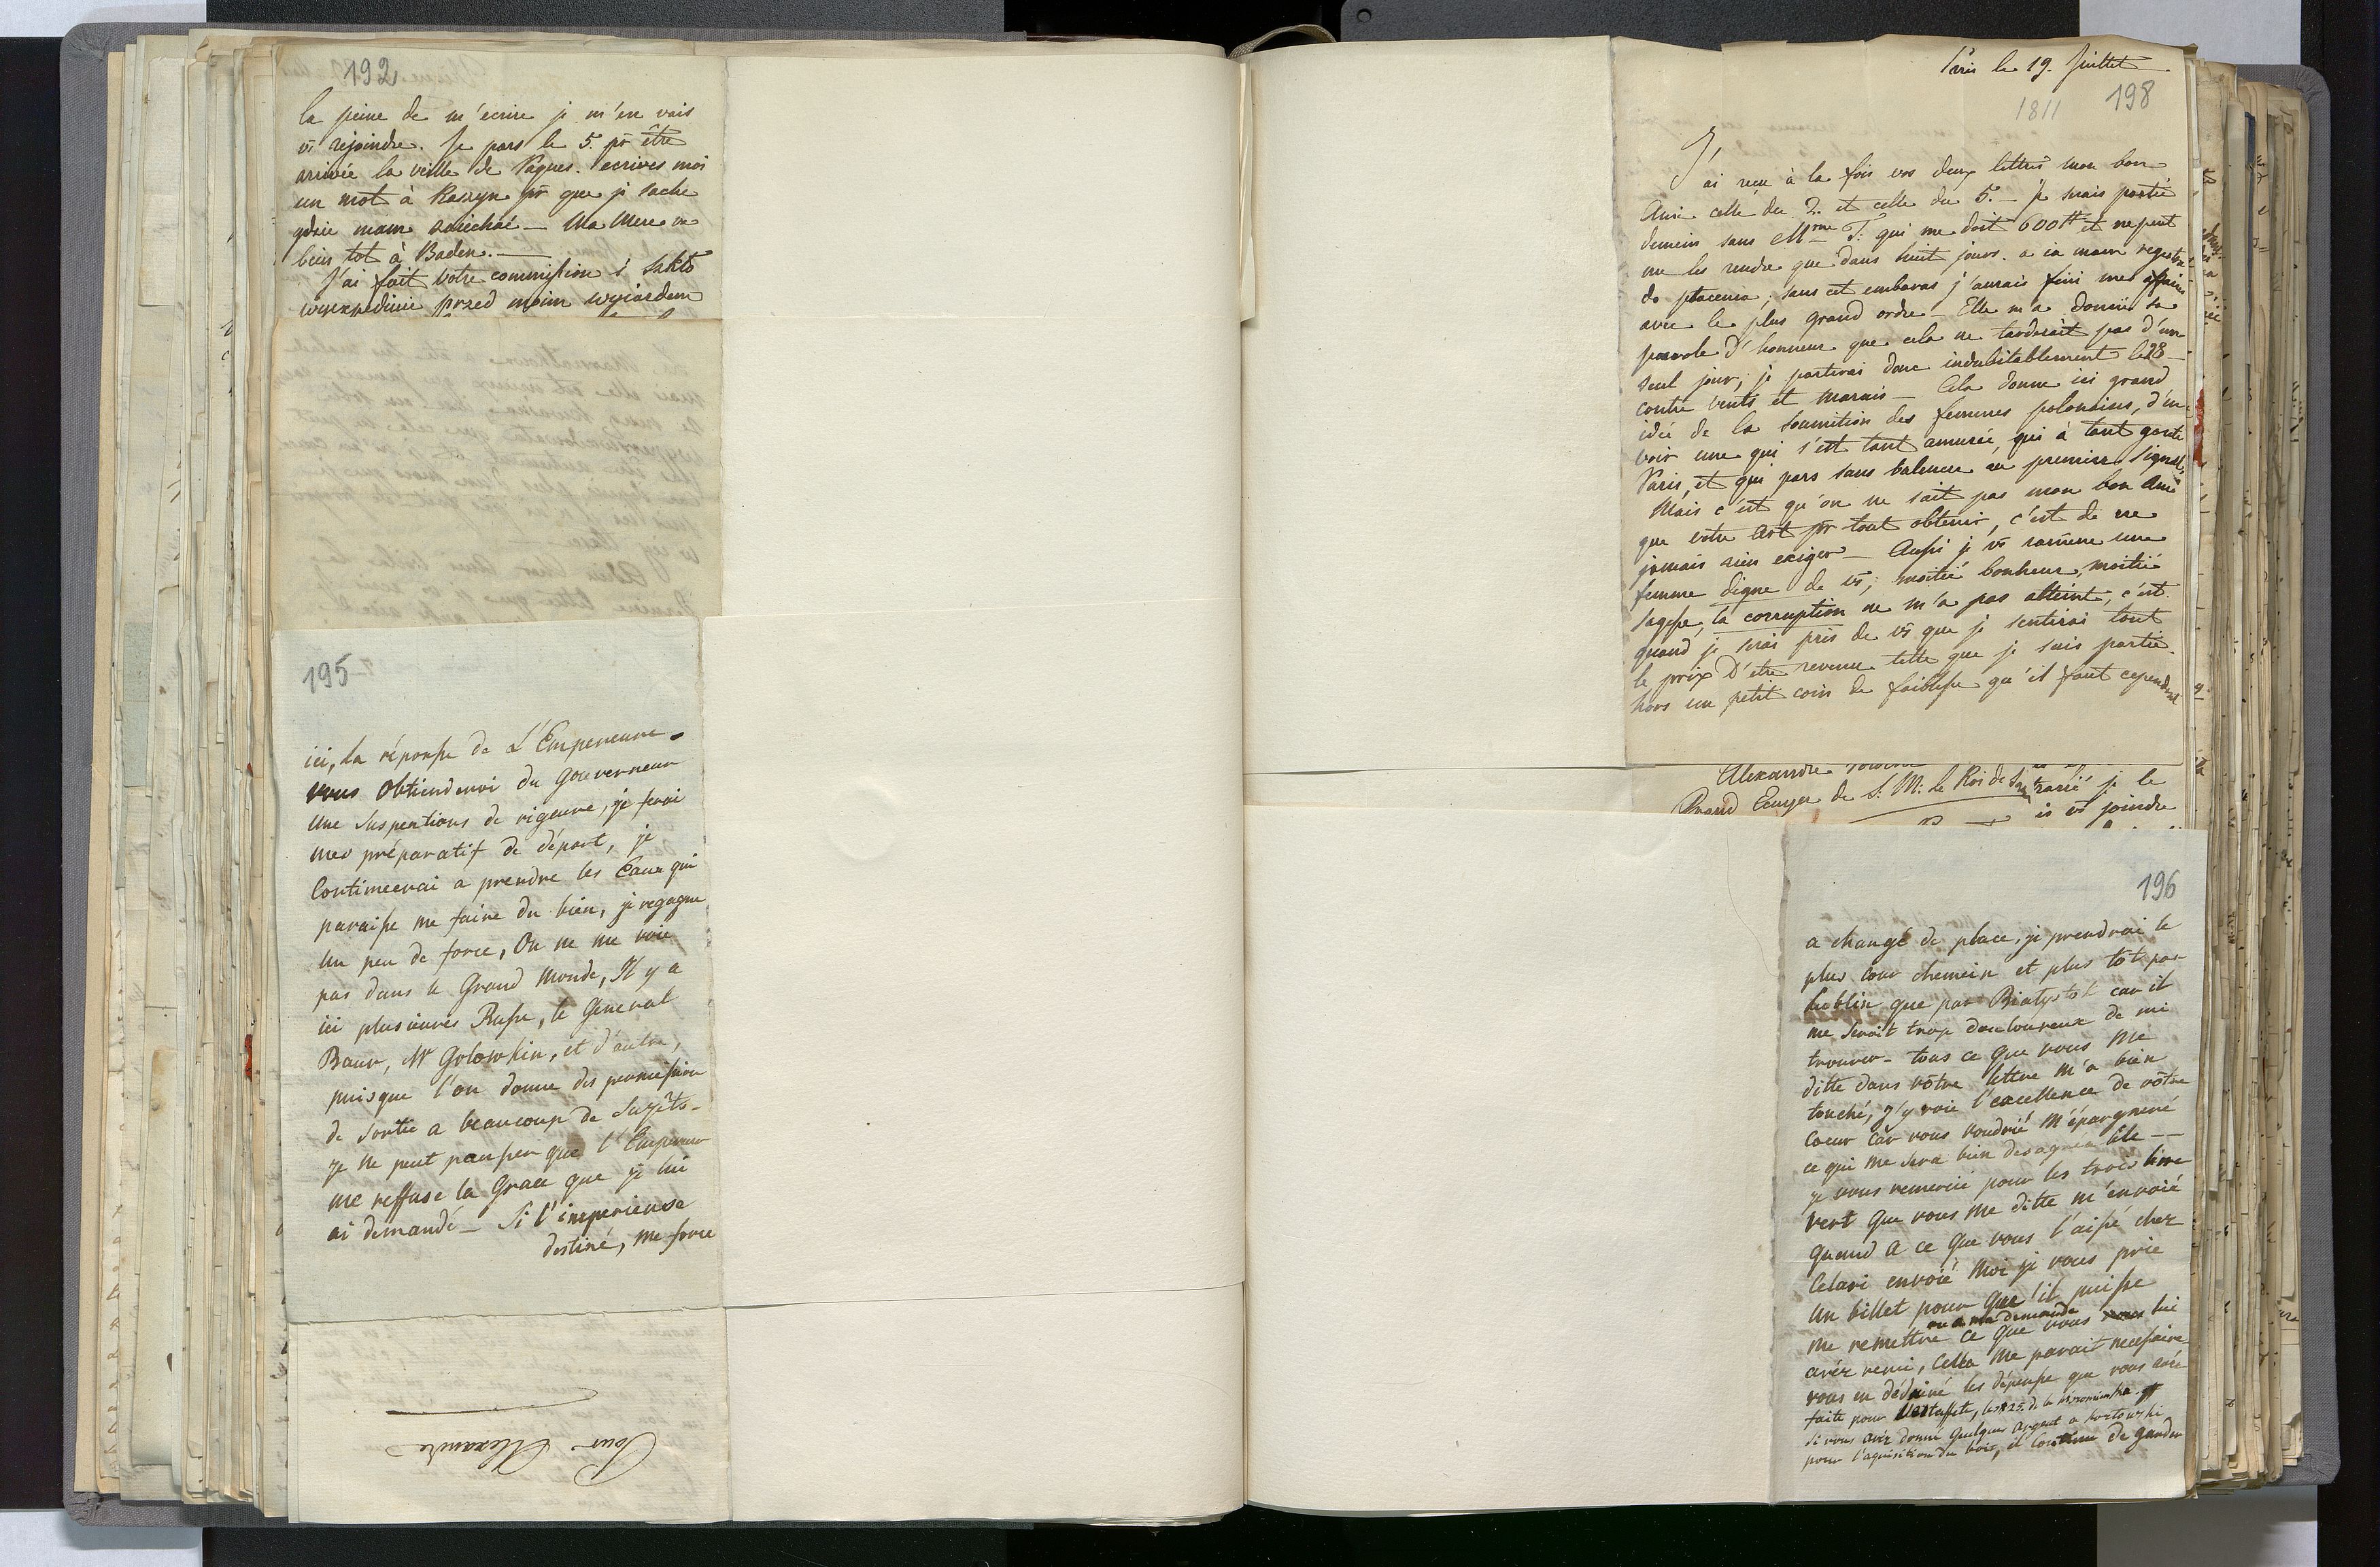 192
la peine de m'ecrire je m'en vais
vs rejoindre. Je pars le 5. pr être
arrivée la veille de Paques. ecrives moi
un mot à Raszyn pr que je sache
gdzie mam zaiechać — Ma Mere va
bien tot à Baden. —
J'ai fait votre commission i Sakto
wyexpediuie przed moim wyiazdem
195
ici, la réponse de L'Empereure.
vous obtiendenoi du gouverneur
une suspentions de rigeure, je ferai
mes préparatif de départ, je
Continuerai a prendre les Eaux qui
paraisse me faire du bien, je regagne
un peu de force, On ne me voie
pas dans le Grand Monde, Il y a
ici plusieures Russe, le General
Baur, Mr Golowkin, et d'autre,
puisque l'on donne des permission
de sortie a beaucoup de Sujéts.
je ne peut pansser que l'Empereur
me reffuse la Grace que je lui
ai demandé — Si l'imperieuse
destiné, me force
Pour Alexandre
Paris le 19. Juillet
1811
198
J'ai reçu à la fois vos deux lettres mon bon
Ami celle du 2. et celle du 5. — je serais partie
demein sans Mme T: qui me doit 600# et ne peut
me les rendre que dans huit jours. a ia mam regestra
do płacenia; sans cet embaras j'aurais fini mes affaires
avec le plus grand ordre — Elle m'a donnée sa
parole d'honneur que cela ne tarderait pas d'un
seul jour, je partirai donc indubitablement le 28 —
contre vents et marais — Cela donne ici grand
idée de la soumition des femmes polonaises, d'en
voir une qui s'est tant amusée, qui à tant gouté
Paris, et qui pars sans balencer au premier signal,
Mais c'est qu'on ne sait pas mon bon Ami
que votre Art pr tout obtenir, c'est de ne
jamais rien exiger — Aussi je vs ramene une
femme digne de vs; moitié bonheur, moitié
sagesse, la corruption ne m'a pas atteint, c'est
quand je serai près de vs que je sentirai tout
le prix d'etre revenue telle que je suis partie.
hors un petit coin de faiblesse qu'il faut cependant
Alexandre
Grand Ecuyer de S: M: le Roi de
rarié je le
is vs joindre
196
a changé de place, je prendroi le
plus cour chemein et plus tôt par
Lublin que par Białystok car il
me seroit trop douloureux de mi
trouver — tous ce que vous me
ditte dans vôtre lettre m'a bien
touché, j'y voie l'excellence de vôtre
Coeur Car vous voudrié m'épargnené
ce qui me sera bien desagréable —
je vous remercie pour les trois livre
vert que vous me ditte m'envoié
quand a ce que vous l'aissé chez
Celari envoié Moi je vous prie
un billet pour que il puisse
me remettre ce que vous lui
avéz remi, Cella me parait necessaire
vous en déduiré les dépensse que vous avée
faite pour l'Estaffete, les #25. d. la
si vous avéz donné quelques Argent a
pour l'aquisition du bois, il Continue de garder